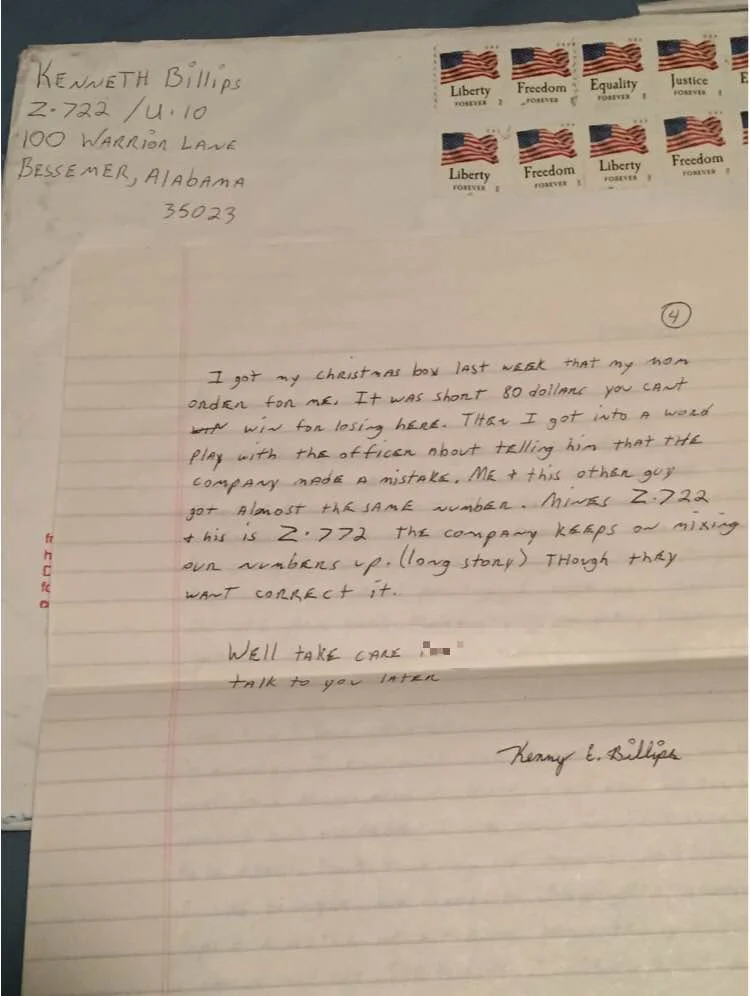 KENNETH Billips
Z-722 / U-10
100 WARRIOR LANE
BESSEMER, AlAbAmA
35023
USA USA USA USA
Liberty Freedom Equality Justice
FOREVER FOREVER FOREVER FOREVER
Liberty Freedom Liberty Freedom
FOREVER FOREVER FOREVER FOREVER
4
I got my christmas box last week that my mom
order for me. It was short 80 dollars you cant
win for losing here. Then I got into a word
play with the officer about telling him that the
company made a mistake. Me + this other guy
got almost the same number. Mines Z-722
+ his is Z-772 the company keeps on mixing
our numbers up. (long story) Though they
want correct it.
Well take care
talk to you later
Kenny E. Billips